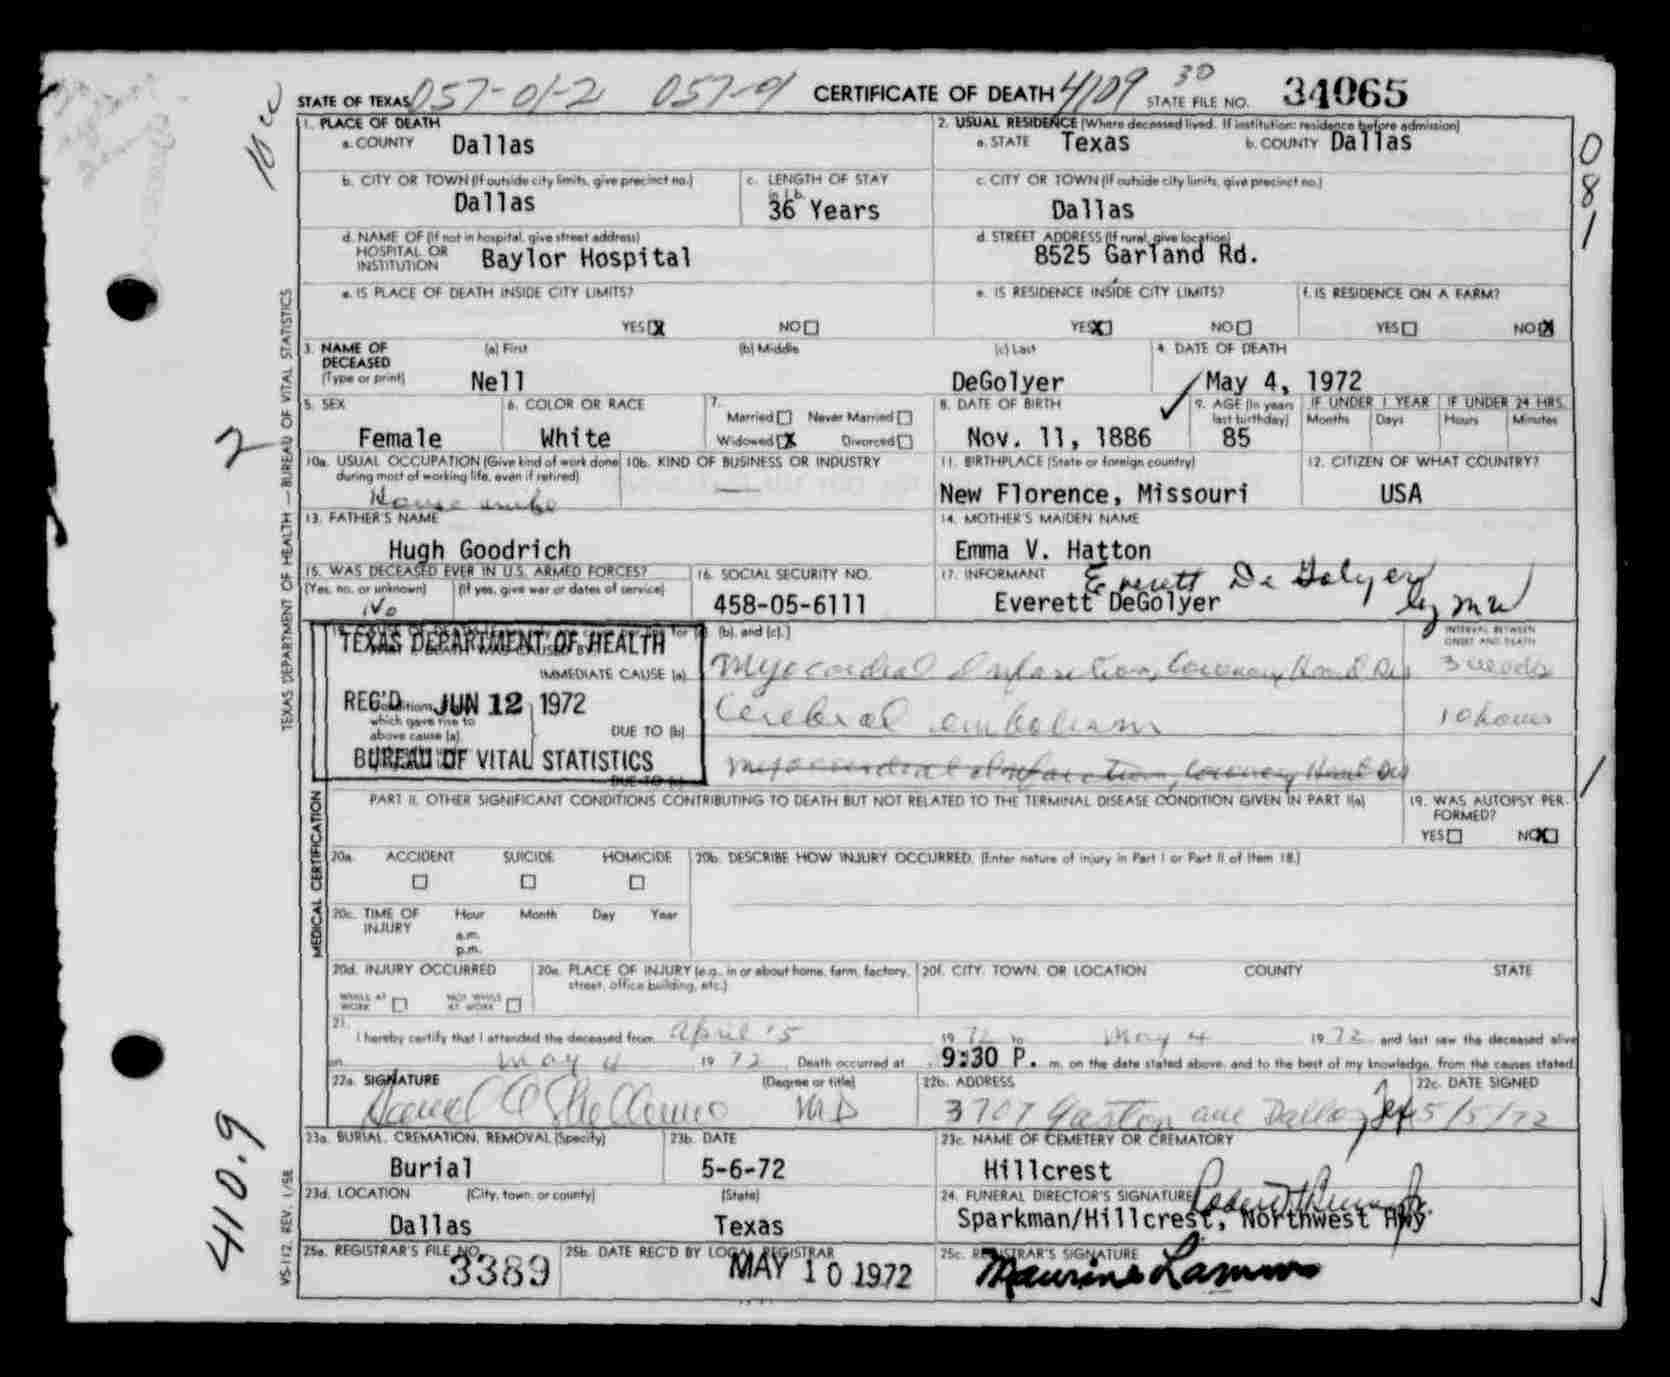 STATE OF TEXAS 057-01-2 057-01 CERTIFICATE OF DEATH 4109 30 STATE FILE NO. 34065
1. PLACE OF DEATH
a. COUNTY Dallas
2. USUAL RESIDENCE (Where deceased lived. If institution: residence before admission)
a. STATE Texas b. COUNTY Dallas
081
b. CITY OR TOWN (If outside city limits, give precinct no.)
Dallas
c. LENGTH OF STAY in 1.b.
36 Years
c. CITY OR TOWN (If outside city limits, give precinct no.)
Dallas
d. NAME OF (If not in hospital, give street address)
HOSPITAL OR
INSTITUTION Baylor Hospital
d. STREET ADDRESS (If rural, give location)
8525 Garland Rd.
e. IS PLACE OF DEATH INSIDE CITY LIMITS?
YES X NO
e. IS RESIDENCE INSIDE CITY LIMITS?
YES X NO
f. IS RESIDENCE ON A FARM?
YES NO X
3. NAME OF DECEASED (Type or print)
(a) First (b) Middle (c) Last
Nell DeGolyer
4. DATE OF DEATH
May 4, 1972
5. SEX
Female
6. COLOR OR RACE
White
7. Married Never Married
Widowed X Divorced
8. DATE OF BIRTH
Nov. 11, 1886
9. AGE (In years last birthday)
85
IF UNDER 1 YEAR IF UNDER 24 HRS.
Months Days Hours Minutes
10a. USUAL OCCUPATION (Give kind of work done during most of working life, even if retired)
10b. KIND OF BUSINESS OR INDUSTRY
11. BIRTHPLACE (State or foreign country)
New Florence, Missouri
12. CITIZEN OF WHAT COUNTRY?
USA
13. FATHER'S NAME
Hugh Goodrich
14. MOTHER'S MAIDEN NAME
Emma V. Hatton
15. WAS DECEASED EVER IN U.S. ARMED FORCES?
(Yes, no, or unknown) (If yes, give war or dates of service)
No
16. SOCIAL SECURITY NO.
458-05-6111
17. INFORMANT Everett DeGolyer
Everett DeGolyer by mw
TEXAS DEPARTMENT OF HEALTH
REC'D JUN 12 1972
BUREAU OF VITAL STATISTICS
(b), and (c).)
INTERVAL BETWEEN ONSET AND DEATH
IMMEDIATE CAUSE (a) Myocardial Infarction, Coronary Heart Dis 3 weeks
conditions which gave rise to above cause (a)
DUE TO (b) Cerebral embolism 10 hours
DUE TO (c) Myocardial Infarction, Coronary Heart Dis
PART II. OTHER SIGNIFICANT CONDITIONS CONTRIBUTING TO DEATH BUT NOT RELATED TO THE TERMINAL DISEASE CONDITION GIVEN IN PART I(a)
19. WAS AUTOPSY PERFORMED?
YES NO X
20a. ACCIDENT SUICIDE HOMICIDE
20b. DESCRIBE HOW INJURY OCCURRED. (Enter nature of injury in Part I or Part II of Item 18.)
20c. TIME OF INJURY Hour Month Day Year
a.m.
p.m.
20d. INJURY OCCURRED
WHILE AT WORK NOT WHILE AT WORK
20e. PLACE OF INJURY (e.g., in or about home, farm, factory, street, office building, etc.)
20f. CITY, TOWN, OR LOCATION COUNTY STATE
21. I hereby certify that I attended the deceased from April 15 1972 to May 4 1972 and last saw the deceased alive
on May 4 1972. Death occurred at 9:30 P. m. on the date stated above, and to the best of my knowledge, from the causes stated.
22a. SIGNATURE (Degree or title)
MD
22b. ADDRESS
3707 Gaston ave Dallas Tex
22c. DATE SIGNED
5/5/72
23a. BURIAL, CREMATION, REMOVAL (Specify)
Burial
23b. DATE
5-6-72
23c. NAME OF CEMETERY OR CREMATORY
Hillcrest
23d. LOCATION (City, town, or county) (State)
Dallas Texas
24. FUNERAL DIRECTOR'S SIGNATURE
Sparkman/Hillcrest, Northwest Hwy
25a. REGISTRAR'S FILE NO.
3389
25b. DATE REC'D BY LOCAL REGISTRAR
MAY 10 1972
25c. REGISTRAR'S SIGNATURE
TEXAS DEPARTMENT OF HEALTH — BUREAU OF VITAL STATISTICS
MEDICAL CERTIFICATION
VS-112, REV. 1/58
2
410.9